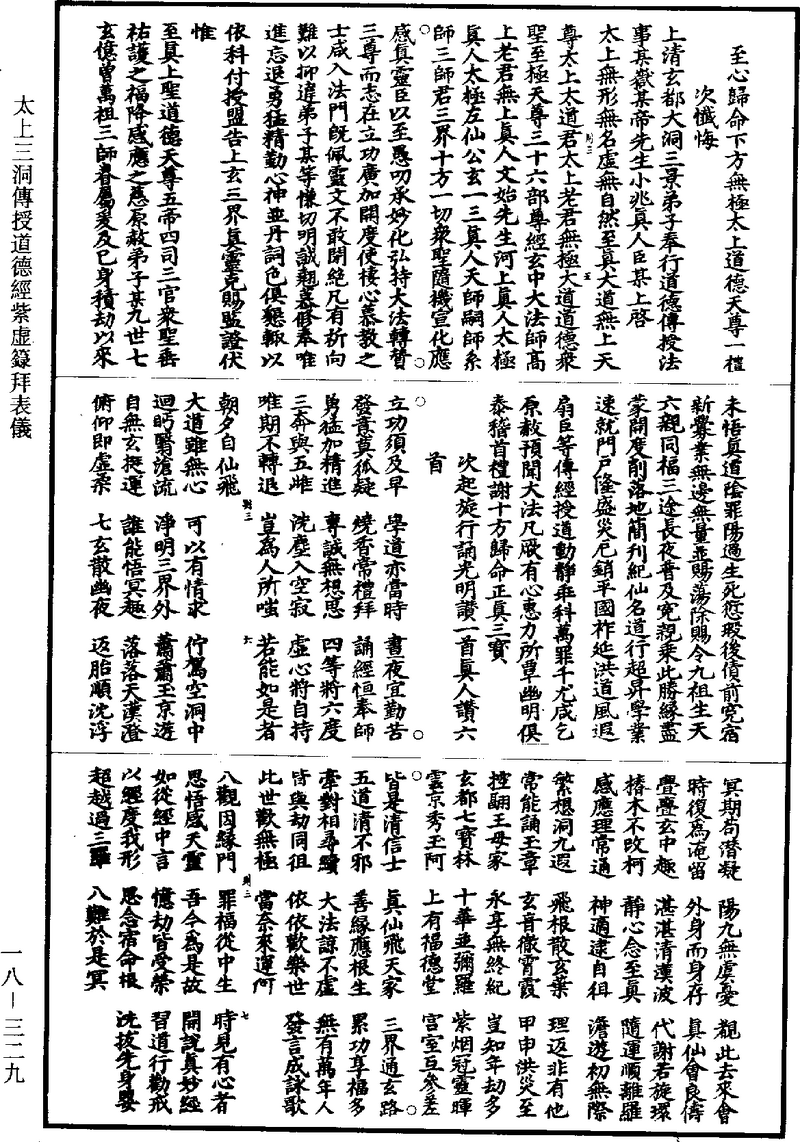 至心歸命下方無極太上道德天尊一禮
次懺悔
上清玄都大洞三景弟子奉行道德傳授法
事某嶽某帝先生小兆真人臣某上啓
太上無形無名虛無自然至真大道無上天
尊太上大道君太上老君無極大道道德衆
聖至極天尊三十六部尊經玄中大法師高
上老君無上真人文始先生河上真人太極
真人太極左仙公玄一三真人天師嗣師系
師三師君三界十方一切衆聖隨機宣化應
感真靈臣以至愚叨承妙化弘持大法轉贊
三尊而志在立功廣加開度使棲心慕教之
士咸入法門既佩靈文不敢閉絕凡有祈向
難以抑違弟子某等慊切明誠翹慕修奉唯
進忘退勇猛精勤心神並丹詞色俱懇輒以
依科付授盟告上玄三界真靈克賜監證伏
惟
至真上聖道德天尊五帝四司三官衆聖垂
祐護之福降感應之慈原赦弟子某九世七
玄億曾萬祖三師眷屬爰及己身積劫以來
未悟真道陰罪陽過生死愆瑕後債前冤宿
新釁業無邊無量並賜蕩除賜令九祖生天
六親同福三途長夜普及冤親乘此勝緣盡
蒙開度削落地簡刊紀仙名道行超昇學業
速就門戶隆盛災厄銷平國祚延洪道風遐
扇臣等傳經授道動靜乖科萬罪千尤咸乞
原赦預聞大法凡厥有心惠力所覃幽明俱
泰稽首禮謝十方歸命正真三寶
次起旋行誦光明讚一首真人讚六
首
立功須及早 學道亦當時 晝夜宜勤苦
發書莫狐疑 燒香常禮拜 誦經恒奉師
勇猛加精進 專誠無想思 四等將六度
三奔與五雌 洗塵入空寂 虛心將自持
唯期不轉退 豈為人所嗤 若能如是者
朝夕白仙飛
大道雖無心 可以有情求 佇駕空洞中
迴眄翳滄流 淨明三界外 蕭蕭玉京遊
自無玄挺運 誰能悟冥趣 落落天漢澄
俯仰即虛柔 七玄散幽夜 返胎順沈浮
冥期苟潛凝 陽九無虞憂 覩此去來會
時復為淹留 外身而身存 真仙會良儔
亹亹玄中趣 湛湛清漢波 代謝若旋環
椿木不改柯 靜心念至真 隨運順離羅
感應理常通 神適逮自徂 澹遊初無際
繁想洞九遐 飛根散玄葉 理返非有他
常能誦玉章 玄音徹霄霞 甲申洪災至
控翮王母家 永享無終紀 豈知年劫多
玄都七寶林 十華並彌羅 紫烟冠靈暉
雲京秀玉阿 上有福德堂 宫室互參差
皆是清信士 真仙飛天家 三界通玄路
五道清不邪 善緣應根生 累功享福多
牽對相尋續 大法諒不虛 無有萬年人
皆與劫同徂 依依歡樂世 發言成詠歌
此世歡無極 當奈來運何
八觀因緣門 罪福從中生 時見有心者
思悟感天靈 吾今為是故 開說真妙經
如從經中言 億劫皆受榮 習道行勸戒
以經度我形 恩念宿命根 洗拔先身嬰
超越過三羅 八難於是冥
太上三洞傳授道德經紫虛籙拜表儀
一八—三二九